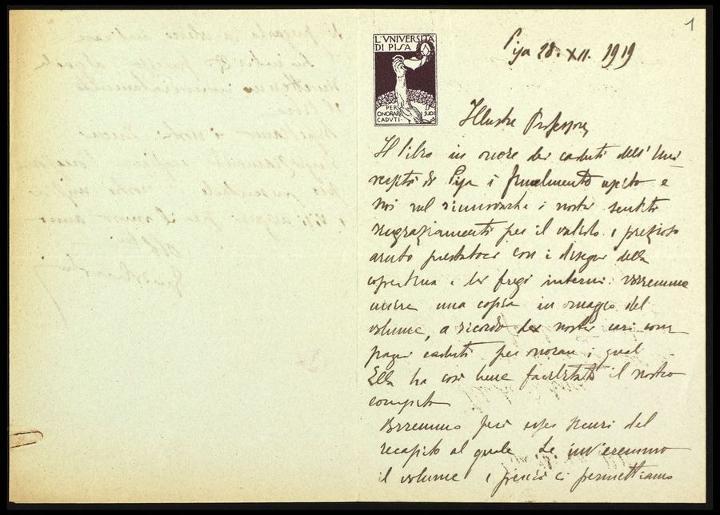 1
L'VNIVERSITÀ
DI PISA
PER
ONORARE
CADUTI
I
SUOI
Pisa 28. XII. 1919
Illustre Professore,
Il libro in onore dei caduti dell'Uni
versità di Pisa è finalmente uscito e
noi nel rinnovarle i nostri sentiti
ringraziamenti per il valido e prezioso
aiuto prestatoci con i disegni della
copertina e dei fregi interni vorremmo
unire una copia in omaggio del
volume, a ricordo dei nostri cari com
pagni caduti per onorare i quali
Ella ha così bene facilitato il nostro
compito
Vorremmo però esser sicuri del
recapito al quale Le invieremmo
il volume e perciò ci permettiamo